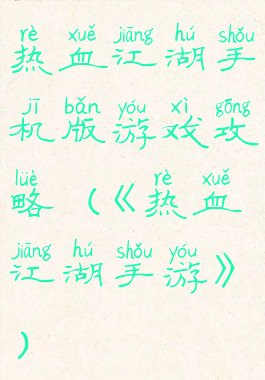 rè xuě jiāng hú shǒu
热血江湖手
jī bǎn yóu xì gōng
机版游戏攻
lüè rè xuě
略（《热血
jiāng hú shǒu yóu
江湖手游》
）